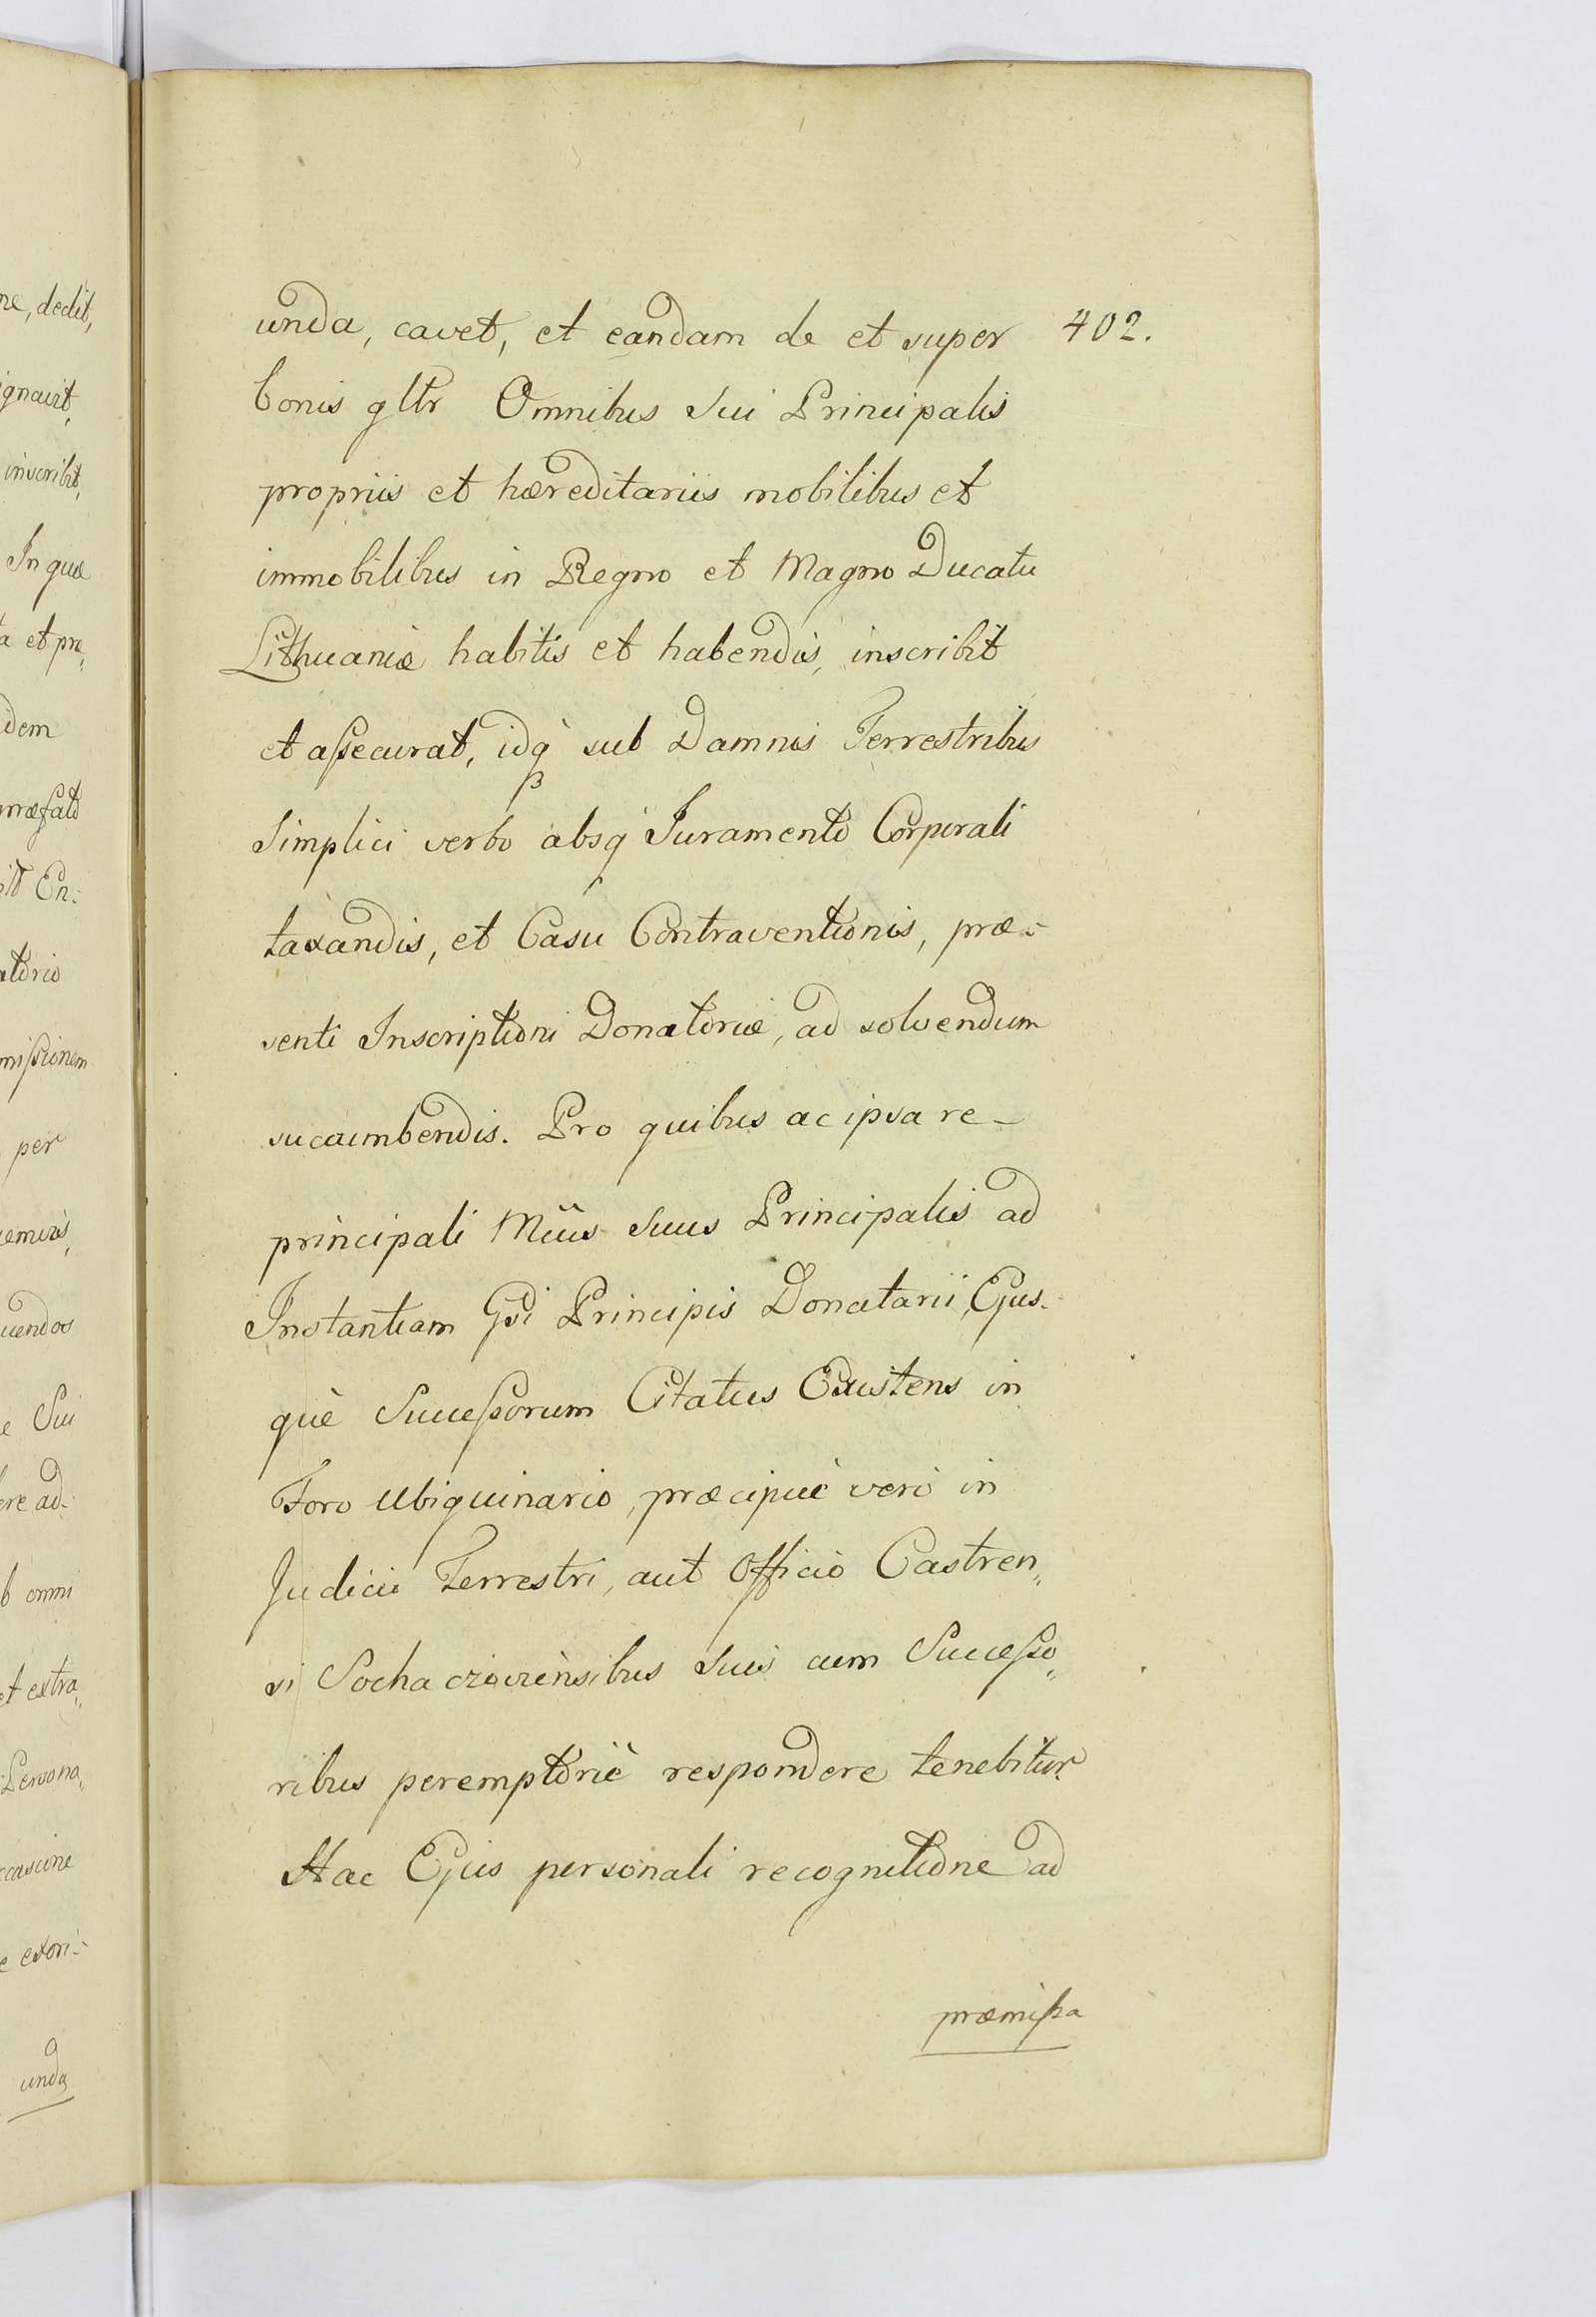 ne, dedit,
ignavit,
inscribit,
In quæ
a et præ,,
dem
præfato
En-
atorio
missionem
per
uendos
e Sui
ere ad-
b omni
et extra,,
Persona,,
ccasione
e exori-
unda
unda, cavet, et eandam de et super 402.
bonis glttr Omnibus Sui Principalis
propriis et hæreditariis mobilibus et
immobilibus in Regno et Magno Ducatu
Lithuaniæ habitis et habendis, inscribit
et assecurat, idq̀ sub Damnis Terrestribus
Simplici verbo absq̀ Juramento Corporali
taxandis, et Casu Contraventionis, præ-
senti Inscriptioni Donatoriæ, ad solvendum
sucaumbendis. Pro quibus ac ipsa re-
principali Mcus Suus Principalis ad
Instantiam Gsdi Principis Donatarii, Ejus-
què Successorum Citatus Existens in
Foro Ubiquinario, præcipuè verò in
Judicii Terrestri, aut Officio Castren,,
si Sochaczoviensibus Suis cum Successo,,
ribus peremptoriè respondere tenebitur
Hac Ejus personali recognitione ad
præmissa